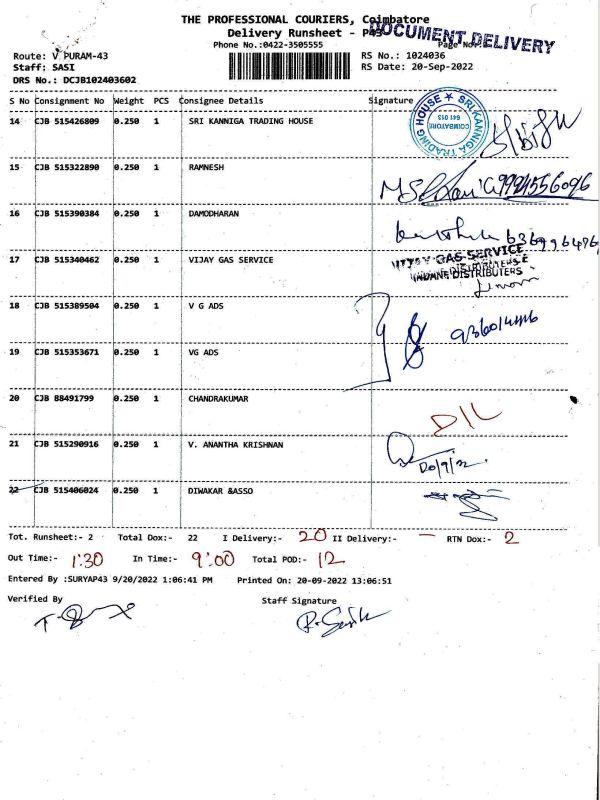 THE PROFESSIONAL COURIERS, Coimbatore
Delivery Runsheet - P43
DOCUMENT DELIVERY
Phone No.:0422-3505555 Page No.:
Route: V PURAM-43 RS No.: 1024036
Staff: SASI RS Date: 20-Sep-2022
DRS No.: DCJB102403602
S No Consignment No Weight PCS Consignee Details Signature
14 CJB 515426809 0.250 1 SRI KANNIGA TRADING HOUSE
SRI KANNIGA TRADING HOUSE
COIMBATORE
641 013
15 CJB 515322890 0.250 1 RAMNESH
9994556096
16 CJB 515390384 0.250 1 DAMODHARAN
17 CJB 515340462 0.250 1 VIJAY GAS SERVICE
VIJAY GAS SERVICE
INDANE DISTRIBUTERS
18 CJB 515389504 0.250 1 V G ADS
19 CJB 515353671 0.250 1 VG ADS
20 CJB 88491799 0.250 1 CHANDRAKUMAR
D/L
21 CJB 515290916 0.250 1 V. ANANTHA KRISHNAN
20/9/22
22 CJB 515406024 0.250 1 DIWAKAR &ASSO
Tot. Runsheet:- 2 Total Dox:- 22 I Delivery:- 20 II Delivery:- — RTN Dox:- 2
Out Time:- 1:30 In Time:- 9:00 Total POD:- 12
Entered By :SURYAP43 9/20/2022 1:06:41 PM Printed On: 20-09-2022 13:06:51
Verified By Staff Signature